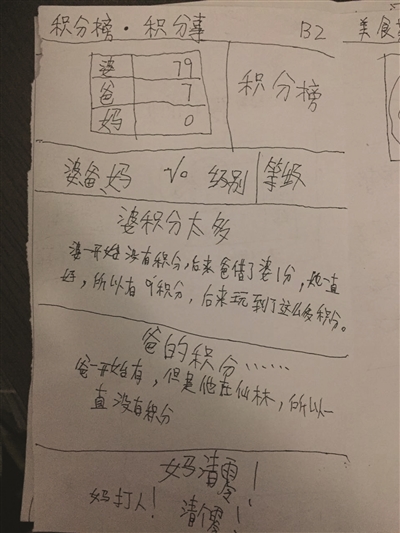 积分榜·积分事 B2 美食
婆 79
爸 7
妈 0
积分榜
婆爸、妈 VO 级别 等级
婆积分太多
婆一开始没有积分,后来爸借了婆1分,她一直
好,所以有9积分,后来玩到了这么多积分。
爸的积分……
爸一开始有,但是他在仙林,所以一
直没有积分
妈清零!
妈打人! 清零!